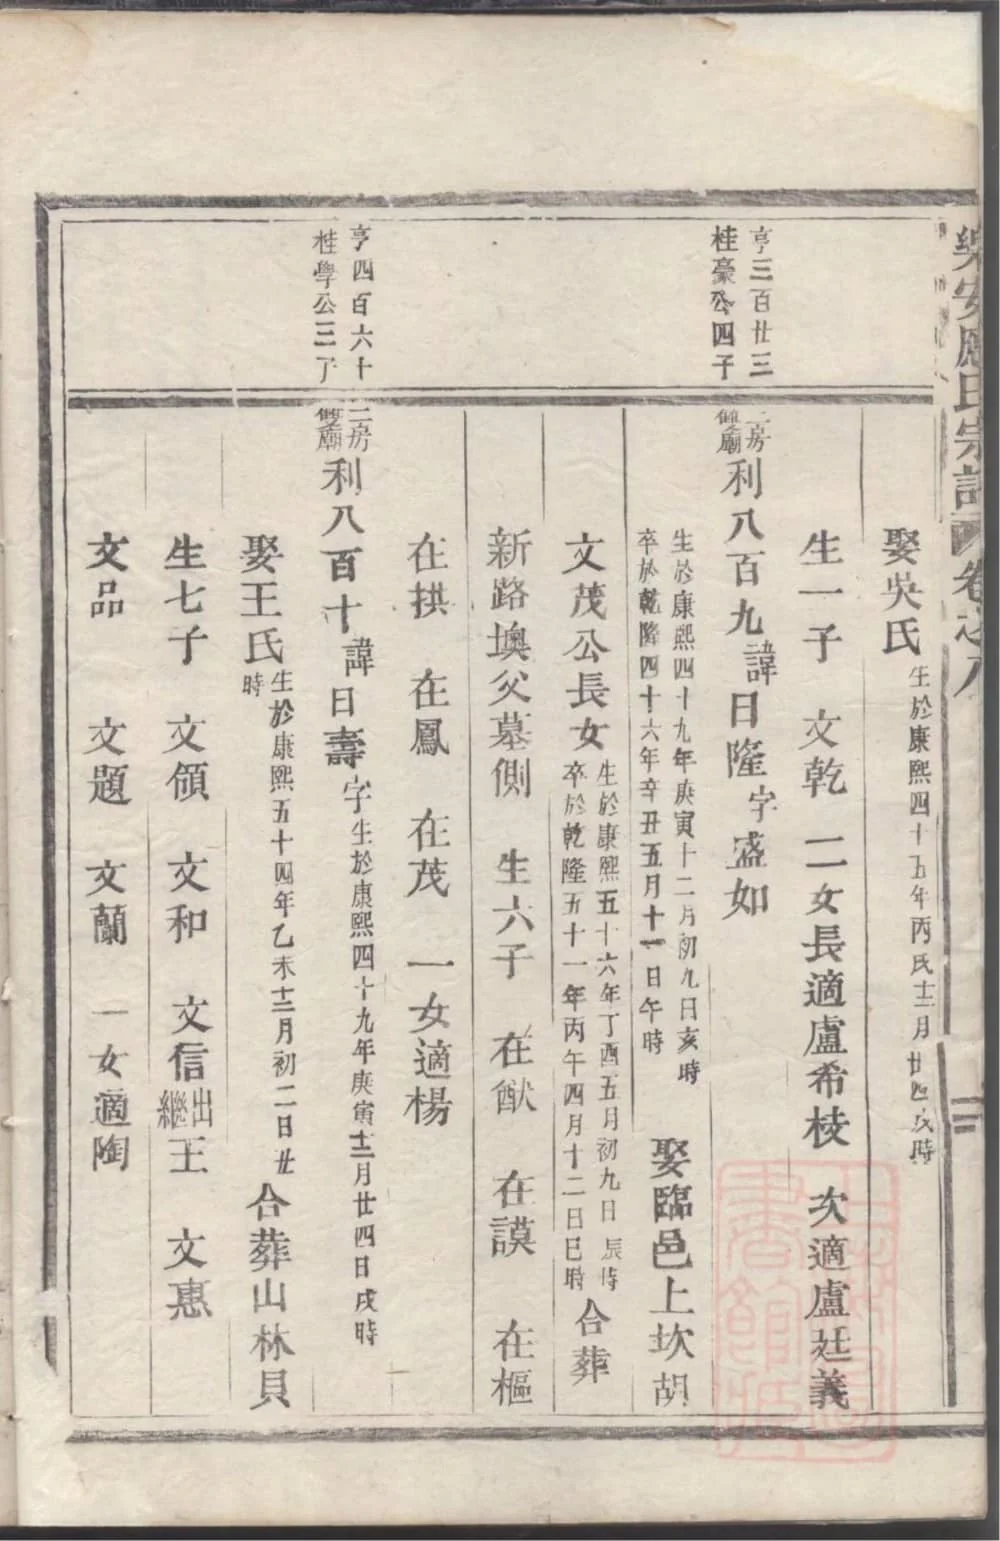 樂安應氏宗譜 卷之八
娶吳氏 生於康熙四十五年丙戌十二月廿四戌時
生一子 文乾 二女長適盧希棱 次適盧廷義
亨三百廿三
桂豪公四子
二房雙廟 利八百九 諱日隆 字盛如
生於康熙四十九年庚寅十二月初九日亥時
卒於乾隆四十六年辛丑五月十一日午時
娶臨邑上坎胡
文茂公長女 生於康熙五十六年丁酉五月初九日辰時
卒於乾隆五十一年丙午四月十二日巳時 合葬
新路墺父墓側 生六子 在猷 在謨 在樞
在拱 在鳳 在茂 一女適楊
亨四百六十
桂學公三子
二房雙廟 利八百十 諱日壽 字 生於康熙四十九年庚寅十二月廿四日戌時
娶王氏 生於康熙五十四年乙未十二月初二日廿時 合葬山林貝
生七子 文頎 文和 文信 出繼王 文惠
文品 文題 文蘭 一女適陶